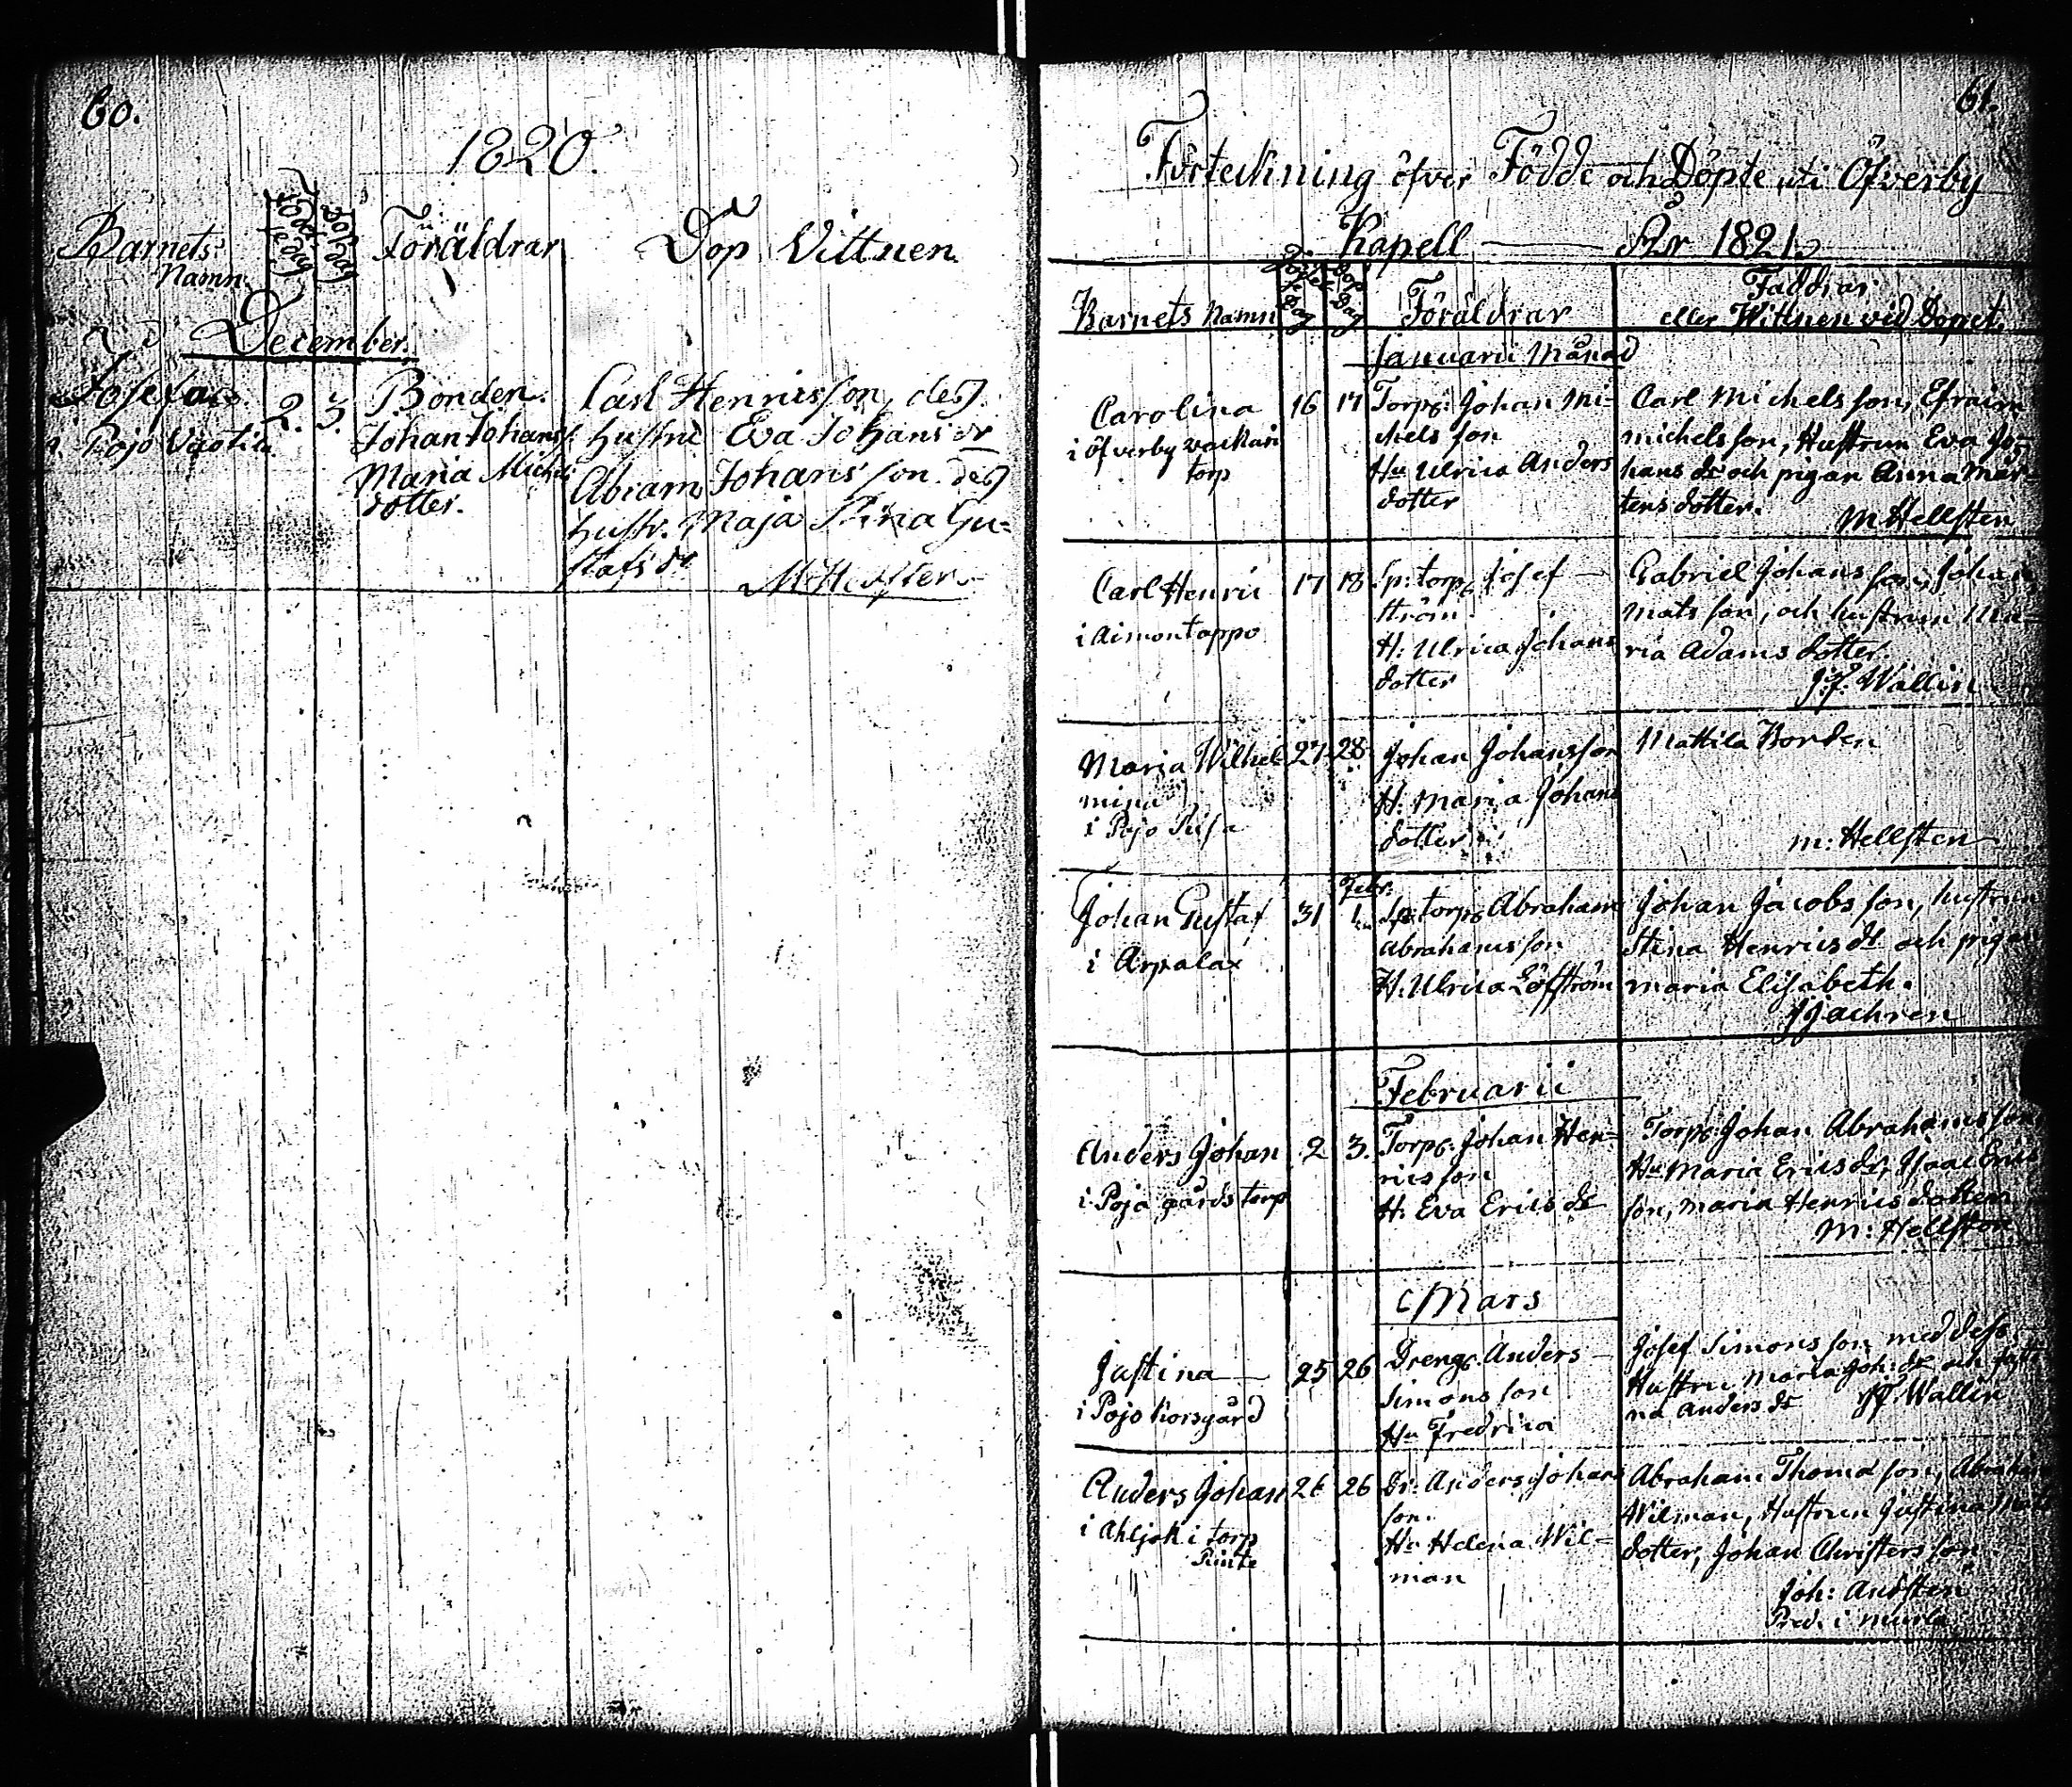 60.
1820.
Barnets Namn
Födelsedag
Dopdag
Föräldrar
Dop Vittnen
December.
Josefa
i Pojo Uvotila
2. 3.
Bonden
Johan Johans
Maria Michels
dotter.
Carl Henricsson, dess
hustru Eva Johans dr
Abram Johansson dess
hustr. Maja Stina Gu=
stafs dr
M: Hellsten
61.
Förteckning öfver Födde och Döpte uti Öfverby
Kapell År 1821.
Barnets Namn
Födelse Dag
Dop Dag
Föräldrar
Faddrar
eller Wittnen vid Dopet.
Januarii Månad
Carolina
i Öfverby
torp
16 17
Torp: Johan Mi-
chels son
Hu Ulrica Anders
dotter
Carl Michelsson, Efraim
Michelsson, Hustrun Eva Jo-
hans dr och pigan Anna Mår-
tens dotter.
M Hellsten
Carl Henric
i Aimontappo
17 18
Sp: torp. Josef
Ström
H: Ulrica Johans
dotter
Gabriel Johansson, Johan
Matsson, och hustrun Ma-
ria Adams dotter
J.F. Wallin
Maria Wilhel
mina
i Pojo Pusa
27 28
Johan Johansson
H. Maria Johans
dotter
Mattila Bonden
M: Hellsten
Johan Gustaf
i Arpalax
31
Febr.
1
Sp. torp. Abraham
Abrahamsson
H: Ulrica Löfström
Johan Jacobsson, hustrun
Stina Henrics dr och pigan
Maria Elisabeth.
J Jachren
Februarii
Anders Johan
i Pojo gårds torp
2 3.
Torp. Johan Hen=
ricsson
H. Eva Erics dr
Torp. Johan Abrahamsson
Hu Maria Erics dr, Isaac Erics
son, Maria Henrics dotter
M: Hellsten
Mars
Justina
i Pojo horsgård
25 26
Dreng. Anders
Simonsson
Hu Fredrica
Josef Simonsson med dess
Hustru Maria Joh: dr och Justi
na Anders dr JF. Wallin
Anders Johan
i Ahljoki torp
Rinte
26 26
Dr. Anders Johans
son.
Hu Helena Wil-
man
Abraham Thomasson, Abraham
Wilman, Hustrun Justina Mats
dotter, Johan Christersson
Joh: Austen
Pred. i